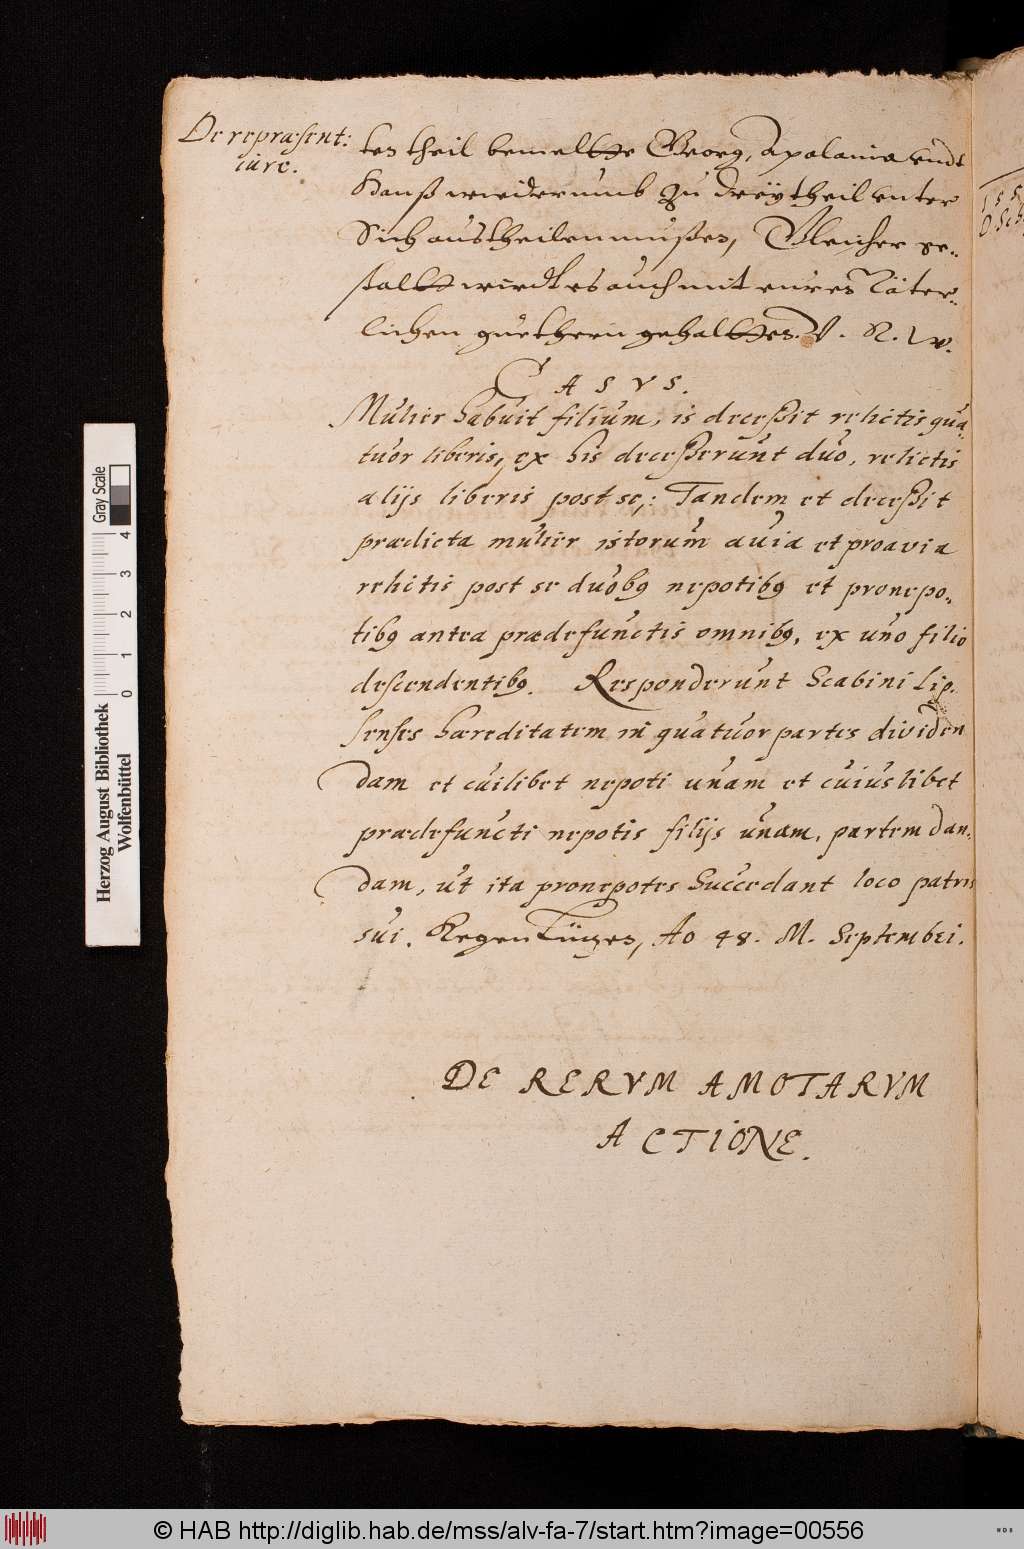 De repræsent:
iure.
ten theil bemeltte Georg, Apolania undt
Hanß wiederumb zu dreÿ theil unter
Sich austheilen mußen, Gleicher ge„
stallt wirdt es auch mit eurer Väter„
lichen guethern gehaltten. V. R. W.
CASVS.
Mulier habuit filium, is deceßit relictis qua„
tuor liberis, ex his deceßerunt duo, relictis
alijs liberis post se,: Tandem et deceßit
prædicta mulier istorum avia et proavia
relictis post se duobq nepotibq et pronepo„
tibq antea prædefunctis omnibq, ex uno filio
descendentibq. Responderunt Scabini Lip„
senses hæreditatem in quatuor partes dividen
dam et cuilibet nepoti unam et cuiuslibet
prædefuncti nepotis filijs unam, partem dan„
dam, ut ita pronepotes Succedant loco patris
sui. Ao 48. M. Septembri.
DE RERVM AMOTARVM
ACTIONE.
Herzog August Bibliothek
Wolfenbüttel
0 1 2 3 4
Gray Scale
© HAB http://diglib.hab.de/mss/alv-fa-7/start.htm?image=00556